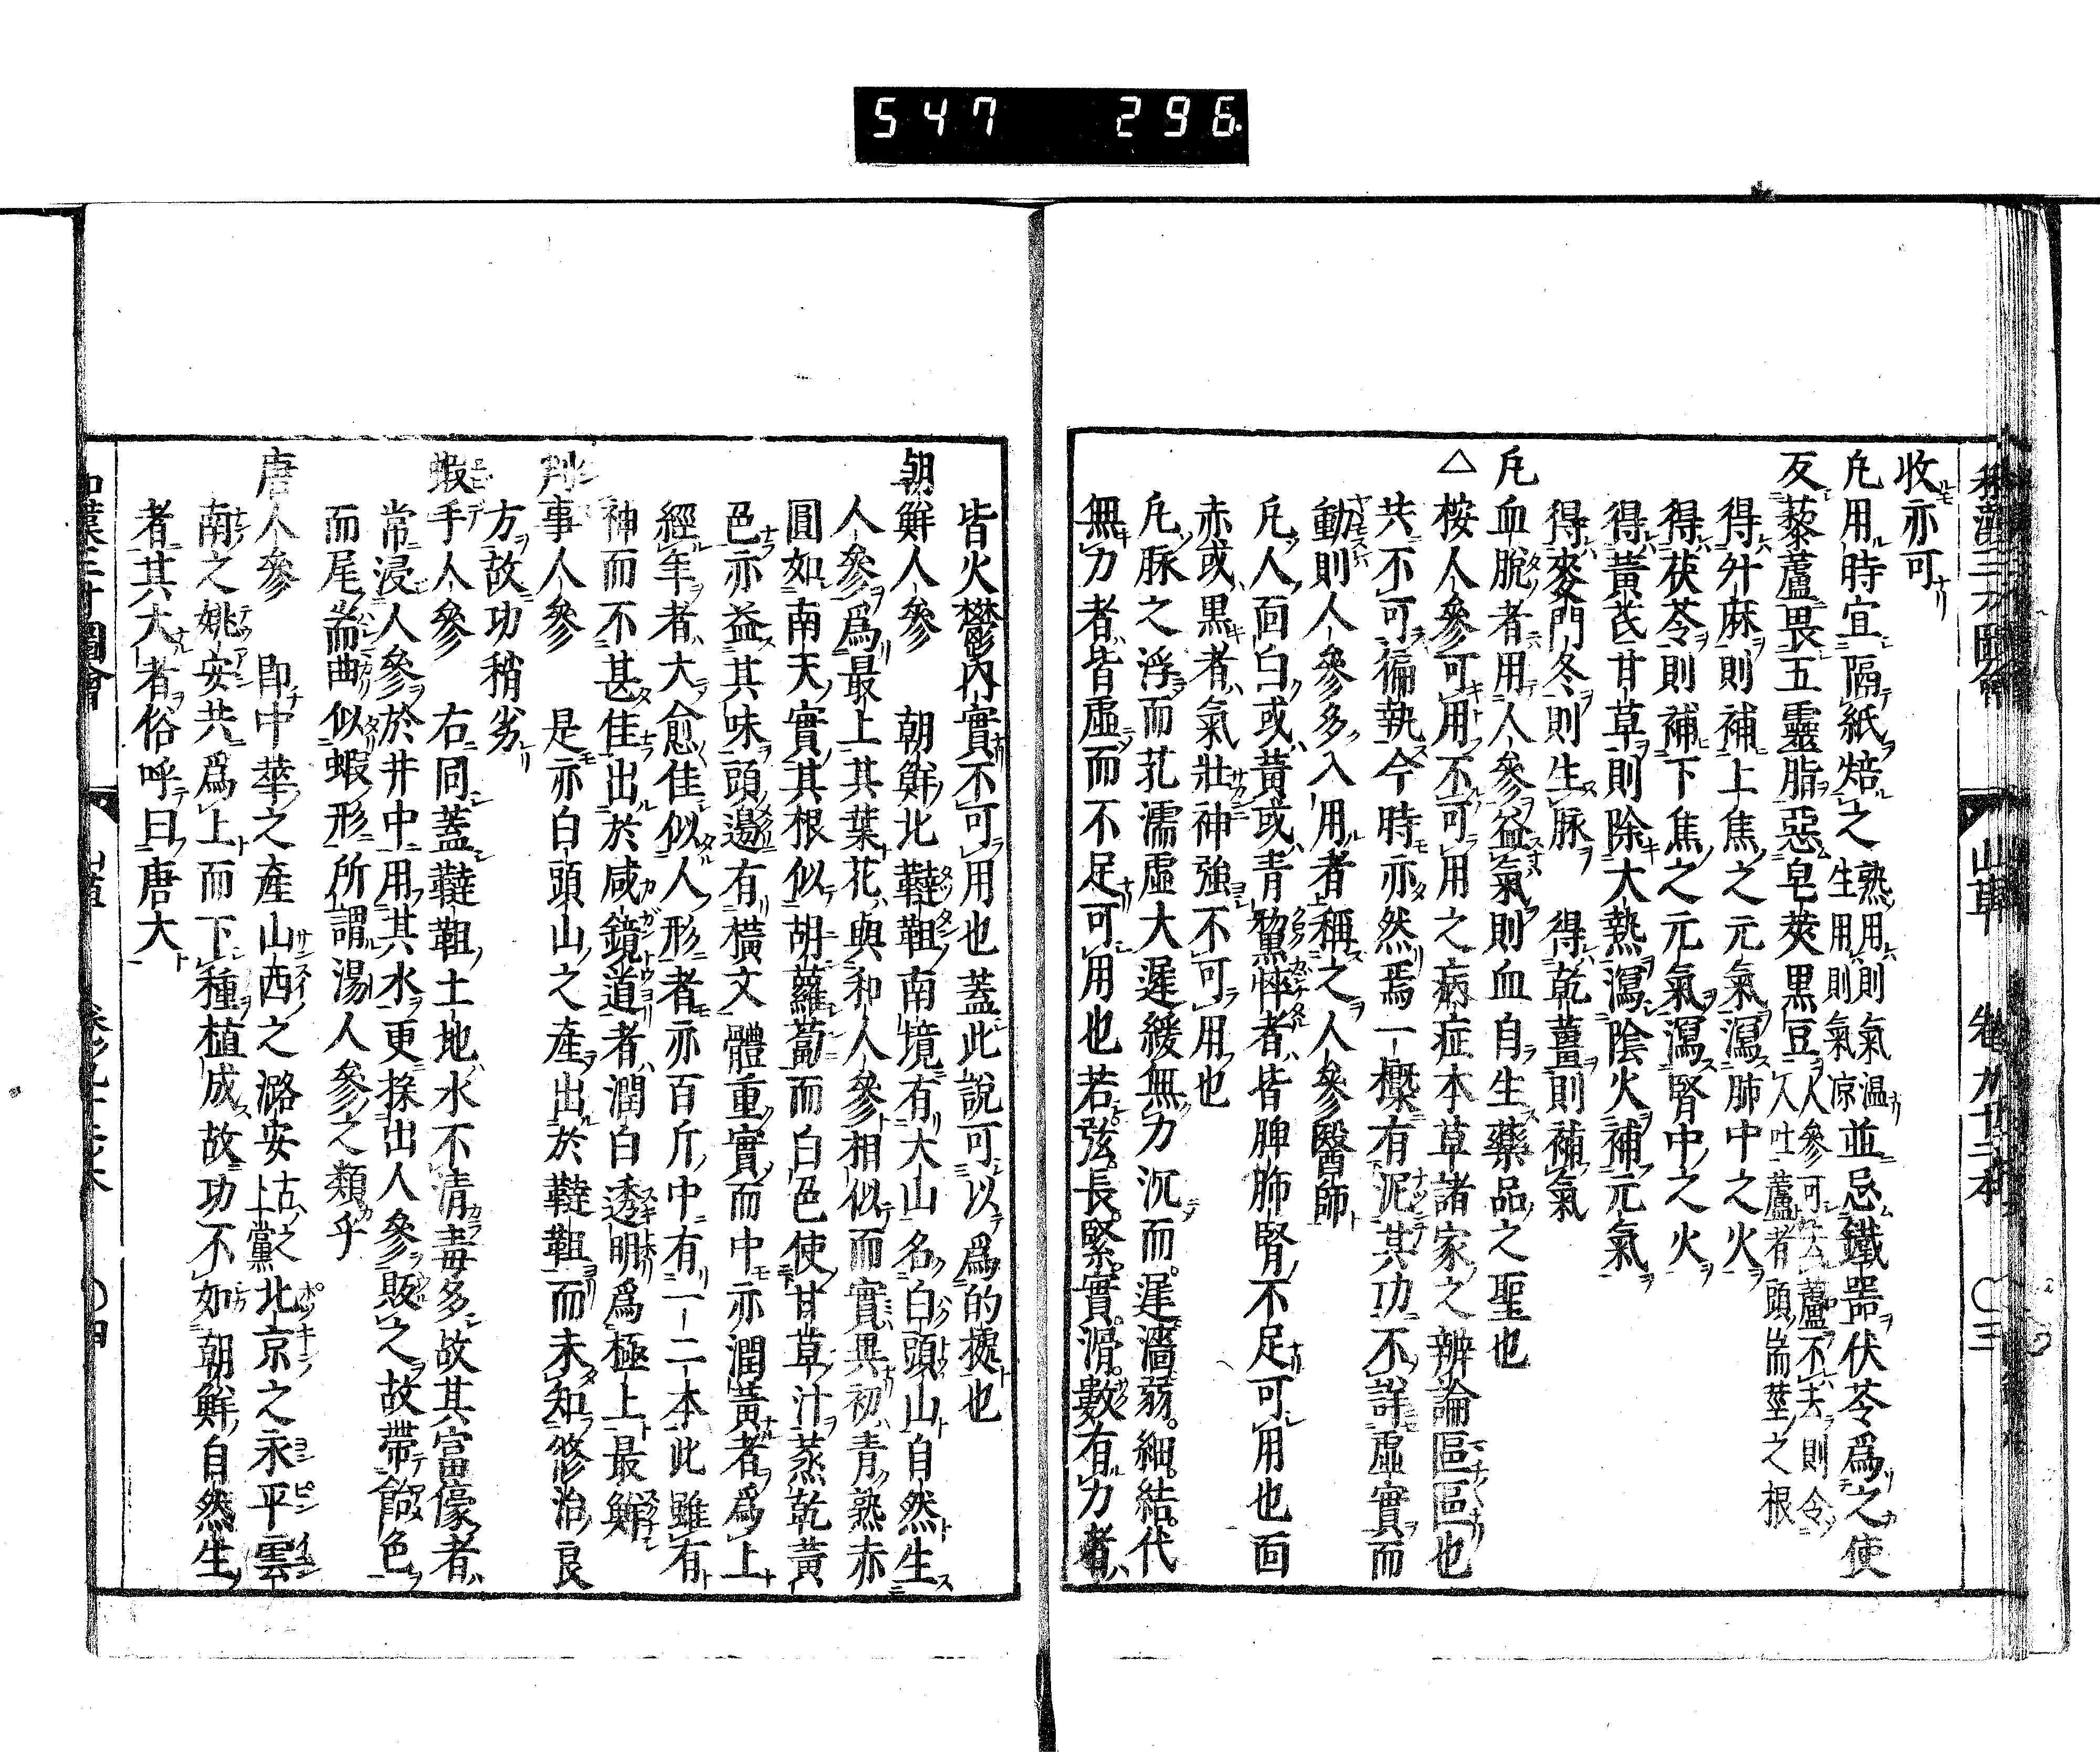 547 296
和漢三才圖會 山草 卷九十二本 〇三
收亦可
凡用時宜隔紙焙之熟用則氣温生用則氣凉並忌鐵器伏苓爲之使
反藜蘆畏五靈脂惡皂莢黒豆人參可去蘆不去則令人吐蘆者頭耑莖之根
得升麻則補上焦之元氣瀉肺中之火
得茯苓則補下焦之元氣瀉腎中之火
得黄芪甘草則除大熱瀉陰火補元氣
得麥門冬則生脉 得乾薑則補氣
凡血脫者用人參益氣則血自生藥品之聖也
△桉人參可用不可用之病症本草諸家之辨論區區也
共不可徧執今時亦然焉一槩有泥其功不詳虛實而
動則人參多入用者稱之人參醫師
凡人面白或黃或青黧悴者皆脾肺腎不足可用也面
赤或黒者氣壯神強不可用也
凡脉之浮而芤濡虛大遲緩無力沉而遲濇弱細結代
無力者皆虛而不足可用也若弦長緊實滑數有力者
皆火鬱內實不可用也蓋此說可以爲的據也
朝鮮人參 朝鮮北韃靼南境有大山名白頭山自然生
人參爲最上其葉花與和人參相似而實異初青熟赤
圓如南天實其根似胡蘿蔔而白色使甘草汁蒸乾黃
色亦益其味頭邉有橫文體重實而中亦潤黃者爲上
經年者大愈佳似人形者亦百斤中有一二本此雖有
神而不甚佳出於咸鏡道者潤白透明爲極上最鮮
判事人參 是亦白頭山之產出於韃靼而未知修治良
方故功稍劣
蝦手人參 右同蓋韃靼土地水不清毒多故其富儓者
常浸人參於井中用其水更採出人參販之故帶餡色
而尾耑曲似蝦形所謂湯人參之類乎
唐人參 卽中華之產山西之潞安古之上黨北京之永平雲
南之姚安共爲上而下種植成故功不如朝鮮自然生
者其大者俗呼曰唐大
和漢三才圖會 山草 卷之九十二本 〇四